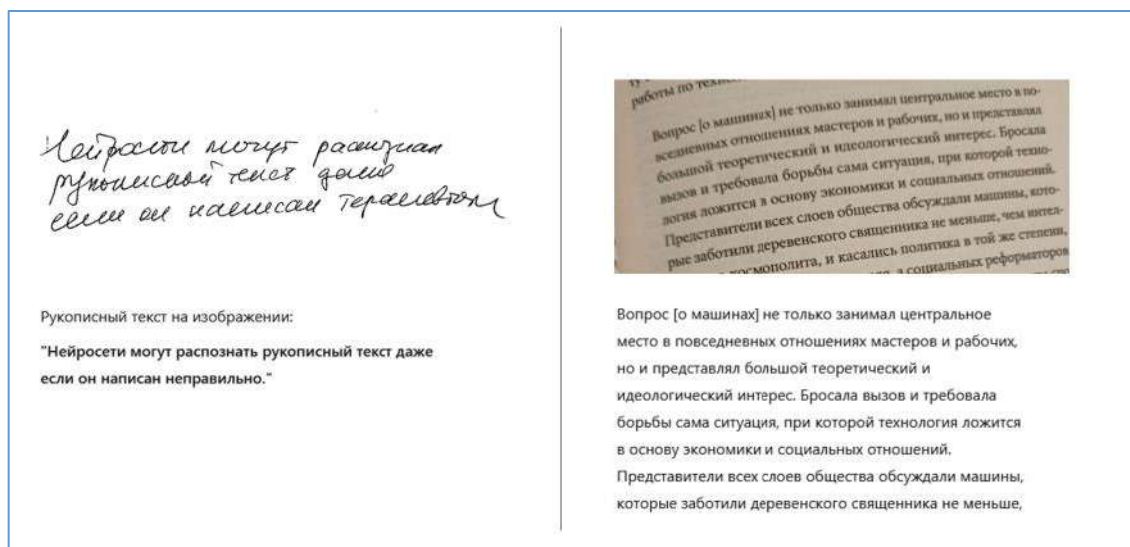 Нейросети могут распознать
рукописный текст даже
если он написан терапевтом
Рукописный текст на изображении:
"Нейросети могут распознать рукописный текст даже
если он написан неправильно."
работы по
Вопрос [о машинах] не только занимал центральное место в по-
вседневных отношениях мастеров и рабочих, но и представлял
большой теоретический и идеологический интерес. Бросала
вызов и требовала борьбы сама ситуация, при которой техно-
логия ложится в основу экономики и социальных отношений.
Представители всех слоев общества обсуждали машины, кото-
рые заботили деревенского священника не меньше, чем интел-
космополита, и касались политика в той же степени,
а социальных реформаторов
Вопрос [о машинах] не только занимал центральное
место в повседневных отношениях мастеров и рабочих,
но и представлял большой теоретический и
идеологический интерес. Бросала вызов и требовала
борьбы сама ситуация, при которой технология ложится
в основу экономики и социальных отношений.
Представители всех слоев общества обсуждали машины,
которые заботили деревенского священника не меньше,